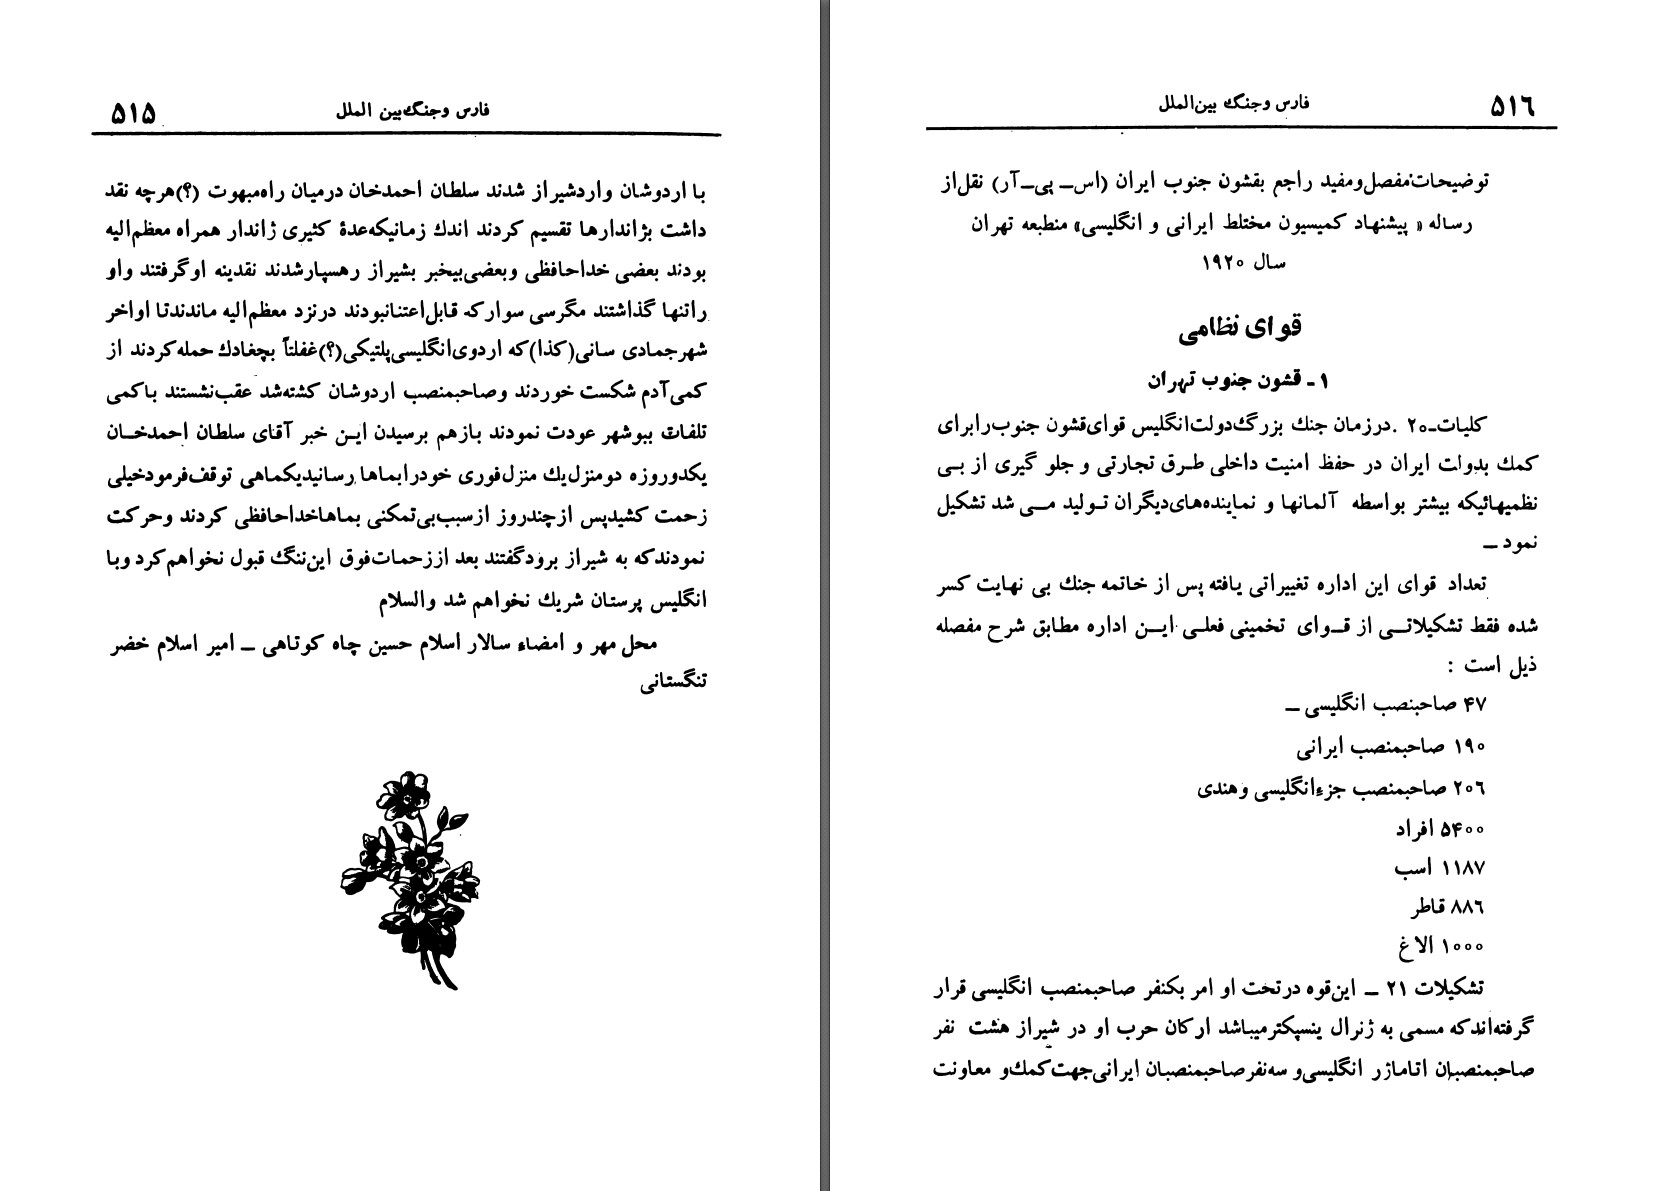 فارس وجنگ بین الملل ۵۱۵
با اردوشان واردشیراز شدند سلطان احمدخان درمیان راه‌مبهوت (؟)هرچه نقد
داشت بژاندارها تقسیم کردند اندك زمانیکه‌عدهٔ کثیری ژاندار همراه معظم‌الیه
بودند بعضی خداحافظی وبعضی‌بیخبر بشیراز رهسپارشدند نقدینه اوگرفتند واو
راتنها گذاشتند مگرسی سوارکه قابل‌اعتنانبودند درنزد معظم‌الیه ماندندتا اواخر
شهرجمادی سانی(کذا)که اردوی‌انگلیسی‌پلتیکی(؟)غفلتاً بچغادك حمله‌کردند از
کمی‌آدم شکست خوردند وصاحبمنصب اردوشان کشته‌شد عقب‌نشستند باکمی
تلفات ببوشهر عودت نمودند بازهم برسیدن این خبر آقای سلطان احمدخان
یکدوروزه دومنزل‌یك منزل‌فوری خودرابماها رسانیدیکماهی توقف‌فرمودخیلی
زحمت کشیدپس ازچندروز ازسبب‌بی‌تمکنی بماهاخداحافظی کردند وحرکت
نمودندکه به شیراز برودگفتند بعد اززحمات‌فوق این‌ننگ قبول نخواهم‌کرد وبا
انگلیس پرستان شریك نخواهم شد والسلام
محل مهر و امضاء سالار اسلام حسین چاه کوتاهی ــ امیر اسلام خضر
تنگستانی
۵۱۶ فارس وجنگ بین‌الملل
توضیحات‌مفصل‌ومفید راجع بقشون جنوب ایران (اس‌ــ پی‌ــ‌آر) نقل‌از
رساله « پیشنهاد کمیسیون مختلط ایرانی و انگلیسی» منطبعه تهران
سال ۱۹۲۰
قوای نظامی
۱ ـ قشون جنوب تهران
کلیات‌ــ۲۰ .درزمان جنك بزرگ‌دولت‌انگلیس قوای‌قشون جنوب‌رابرای
کمك بدولت ایران در حفظ امنیت داخلی طرق تجارتی و جلو گیری از بی
نظمیهائیکه بیشتر بواسطه آلمانها و نماینده‌های‌دیگران تولید می شد تشکیل
نمود ــ
تعداد قوای این اداره تغییراتی یافته پس از خاتمه جنك بی نهایت کسر
شده فقط تشکیلاتی از قوای تخمینی فعلی این اداره مطابق شرح مفصله
ذیل است :
۴۷ صاحبنصب انگلیسی ــ
۱۹۰ صاحبمنصب ایرانی
۲۰۶ صاحبمنصب جزءانگلیسی وهندی
۵۴۰۰ افراد
۱۱۸۷ اسب
۸۸۶ قاطر
۱۰۰۰ الاغ
تشکیلات ۲۱ ــ این‌قوه درتحت او امر بکنفر صاحبمنصب انگلیسی قرار
گرفته‌اندکه مسمی به ژنرال ینسپکترمیباشد ارکان حرب او در شیراز هشت نفر
صاحبمنصبان اتاماژر انگلیسی‌و سه‌نفرصاحبمنصبان ایرانی‌جهت‌کمك‌و معاونت